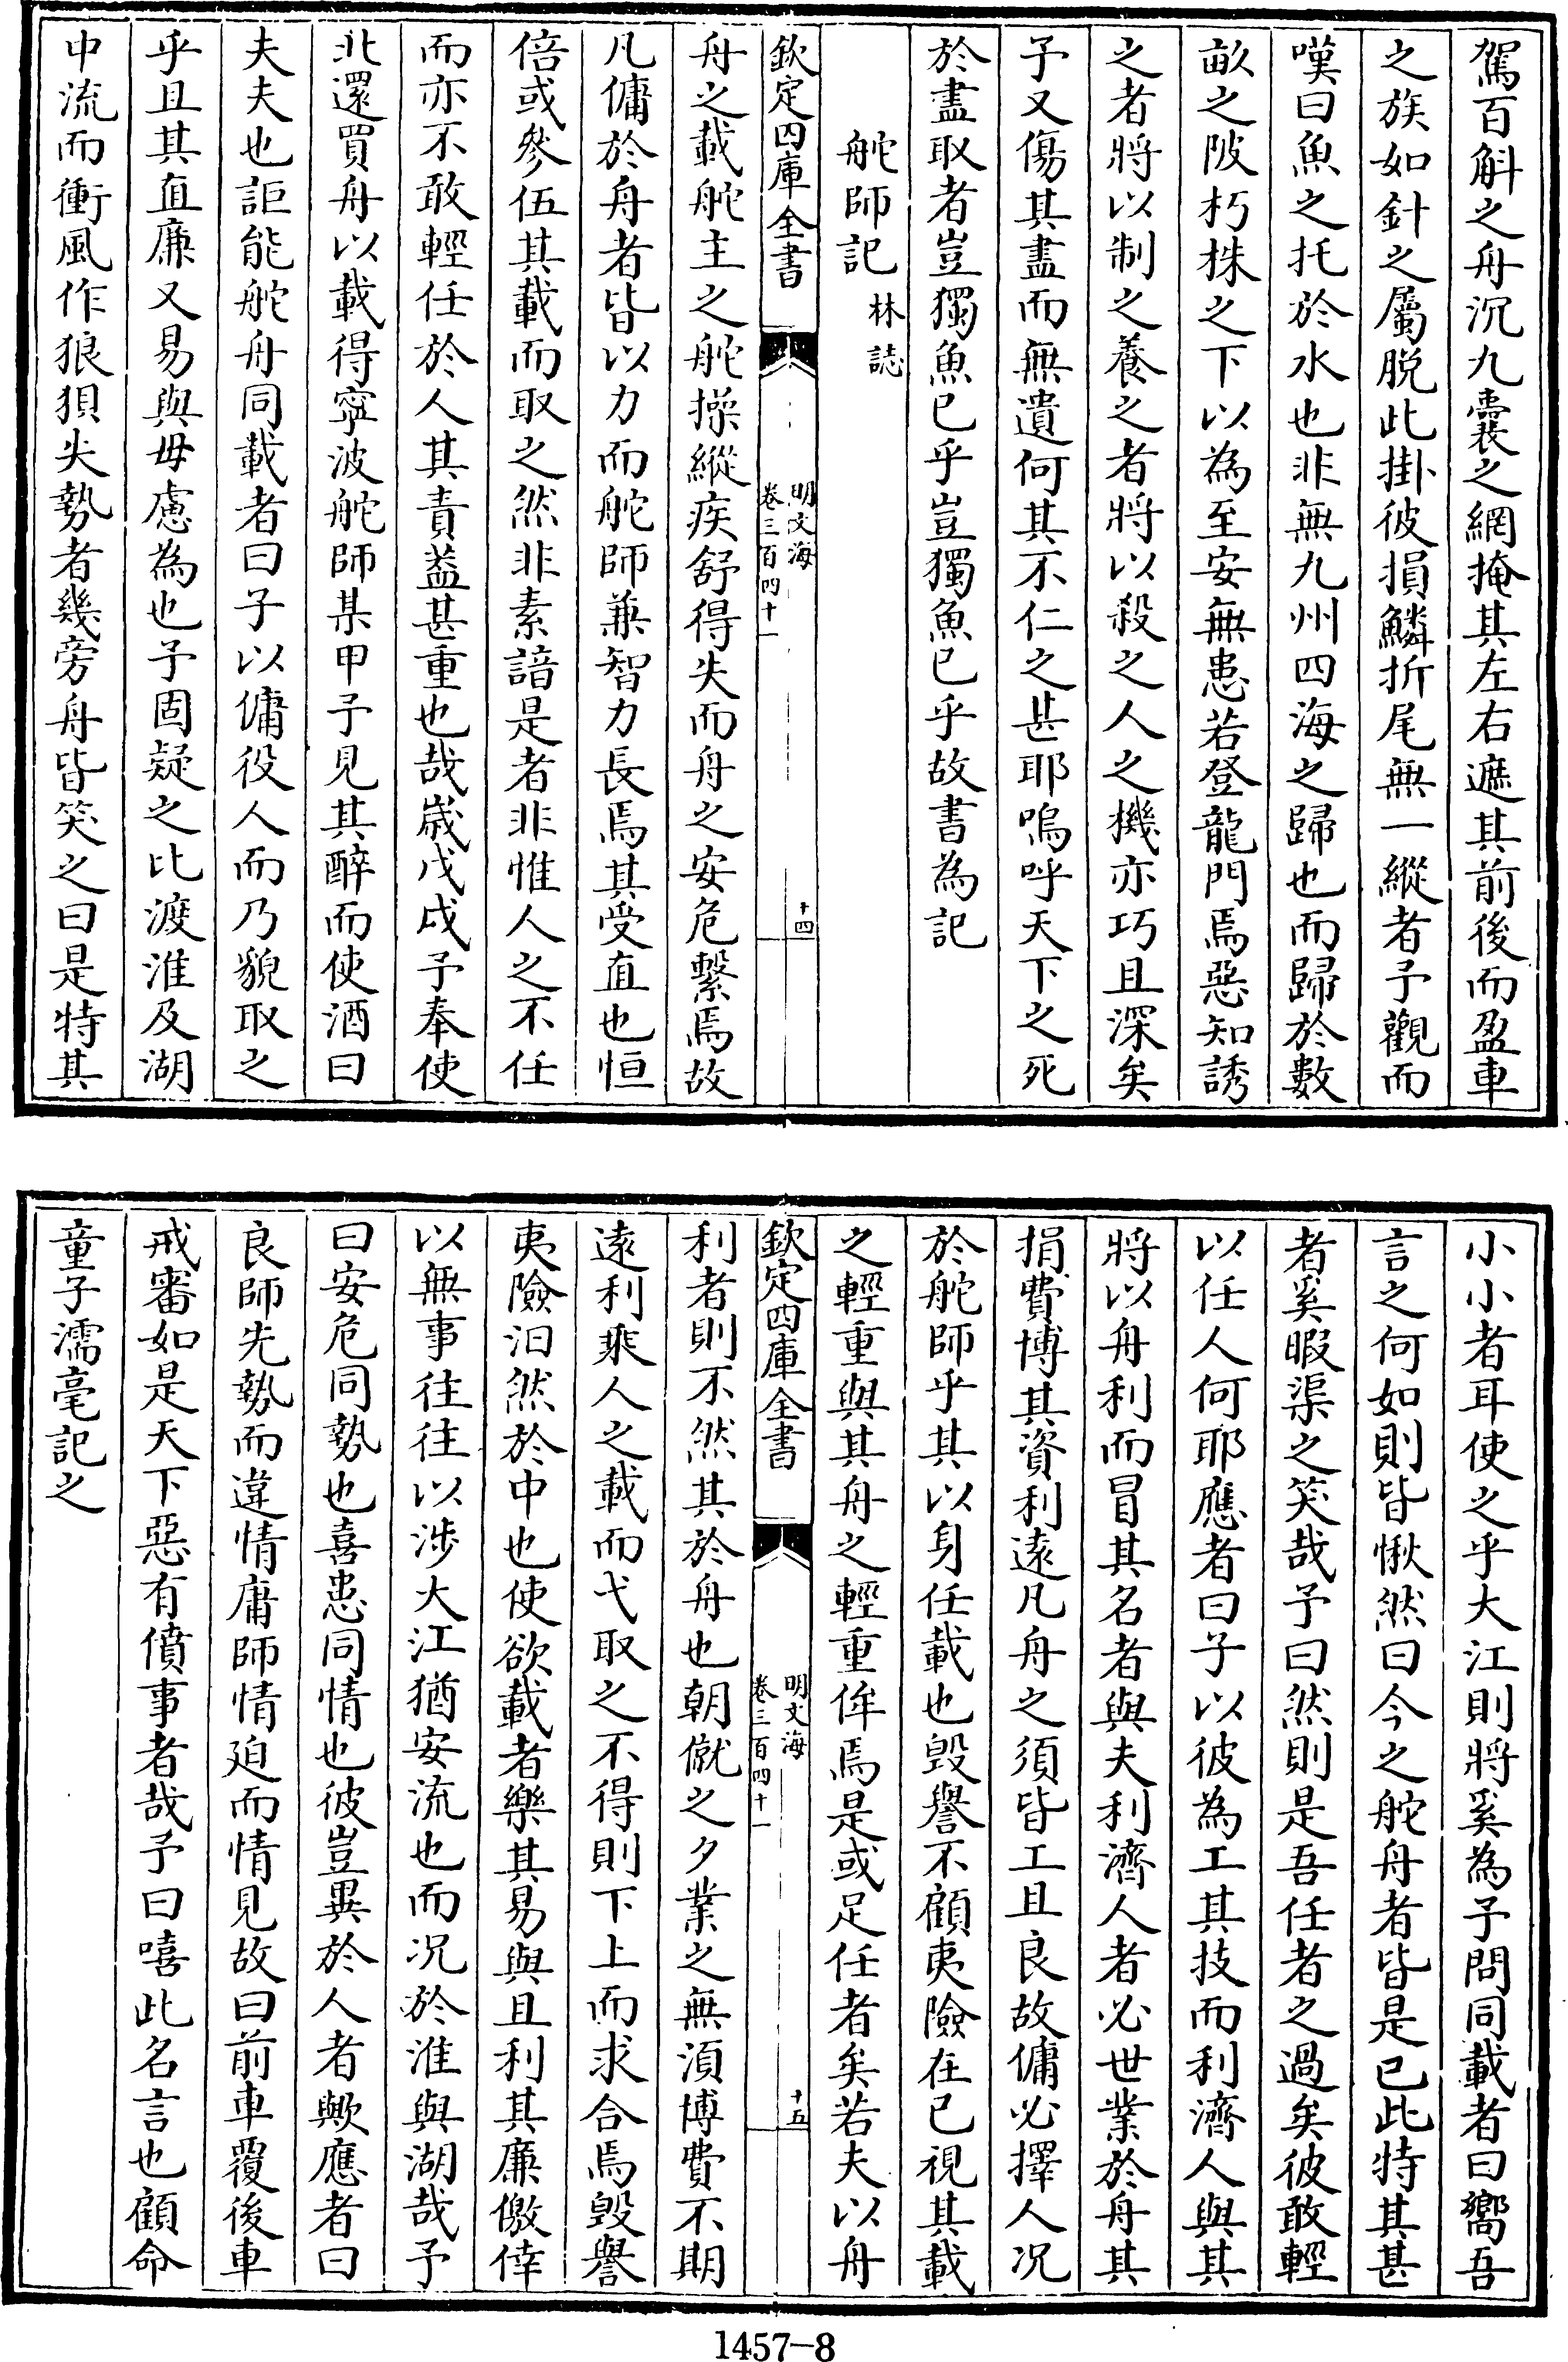 駕百斛之舟沉九囊之網掩其左右遮其前後而盈車
之族如針之屬脱此掛彼損鱗折尾無一縱者予觀而
嘆曰魚之托於水也非無九州四海之歸也而歸於數
畝之陂朽株之下以為至安無患若登龍門焉惡知誘
之者將以制之養之者將以殺之人之機亦巧且深矣
予又傷其盡而無遺何其不仁之甚耶嗚呼天下之死
於盡取者豈獨魚已乎豈獨魚已乎故書為記
舵師記 林誌
欽定四庫全書 明文海 卷三百四十一 十四
舟之載舵主之舵操縱疾舒得失而舟之安危繫焉故
凡傭於舟者皆以力而舵師兼智力長焉其受直也恒
倍或參伍其載而取之然非素諳是者非惟人之不任
而亦不敢輕任於人其責葢甚重也哉嵗戊戌予奉使
北還買舟以載得寧波舵師某甲予見其醉而使酒曰
夫夫也詎能舵舟同載者曰子以傭役人而乃貌取之
乎且其直廉又易與毋慮為也予固疑之比渡淮及湖
中流而衝風作狼狽失勢者幾旁舟皆笑之曰是特其
小小者耳使之乎大江則將奚為予問同載者曰嚮吾
言之何如則皆愀然曰今之舵舟者皆是已此特其甚
者奚暇渠之笑哉予曰然則是吾任者之過矣彼敢輕
以任人何耶應者曰子以彼為工其技而利濟人與其
將以舟利而冒其名者與夫利濟人者必世業於舟其
捐費博其資利逺凡舟之須皆工且良故傭必擇人况
於舵師乎其以身任載也毁譽不顧夷險在已視其載
之輕重與其舟之輕重侔焉是或足任者矣若夫以舟
欽定四庫全書 明文海 卷三百四十一 十五
利者則不然其於舟也朝僦之夕業之無湏博費不期
逺利乘人之載而弋取之不得則下上而求合焉毁譽
夷險汨然於中也使欲載者樂其易與且利其廉儌倖
以無事往往以涉大江猶安流也而况於淮與湖哉予
曰安危同勢也喜患同情也彼豈異於人者歟應者曰
良師先勢而違情庸師情廹而情見故曰前車覆後車
戒審如是天下惡有僨事者哉予曰嘻此名言也顧命
童子濡毫記之
1457-8